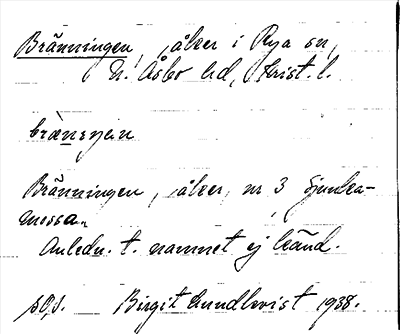 Bränningen, åker i Rya sn,
N. Åsbo hd, Krist. l.
Bränningen, åker, nr 3 Sjunka-
mossa.
Anledn. t. namnet ej känd.
Birgit Lundkvist 1938.